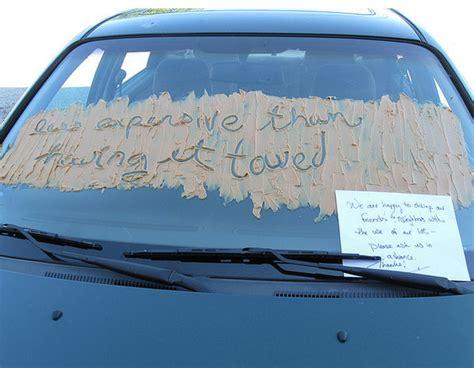 less expensive than
having it towed
We are happy to oblige our
friends & neighbors with
the use of our lot -
please ask us in
advance.
Thanks!